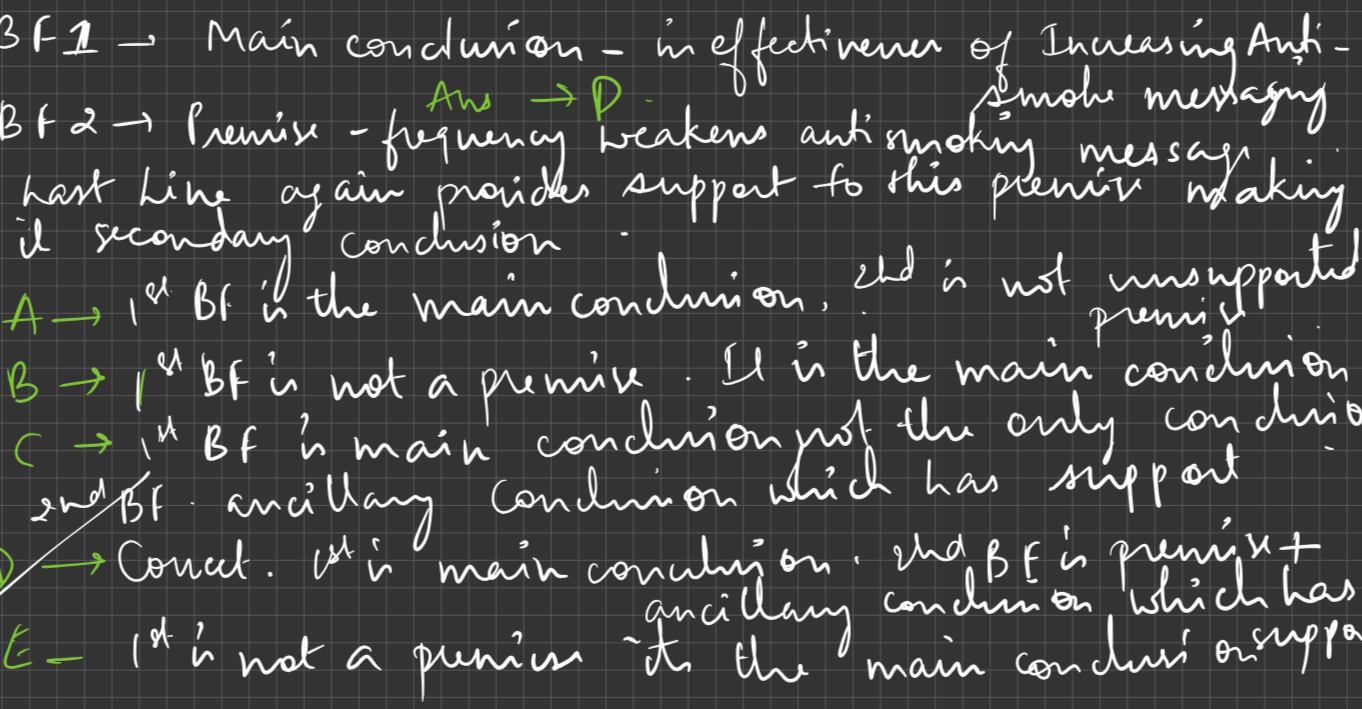 BF1 → Main conclusion - ineffectiveness of Increasing Anti-
smoke messaging
Ans → D.
BF2 → Premise - frequency weakens antismoking message
Last Line again provides support to this premise making
it secondary conclusion.
A → 1st BF is the main conclusion, 2nd is not unsupported
premise
B → 1st BF is not a premise. It is the main conclusion
C → 1st BF is main conclusion not the only conclusio
2nd BF. ancillary conclusion which has support
D → Correct. 1st is main conclusion. 2nd BF is premise +
ancillary conclusion which has
E - 1st is not a premise its the main conclusion suppo